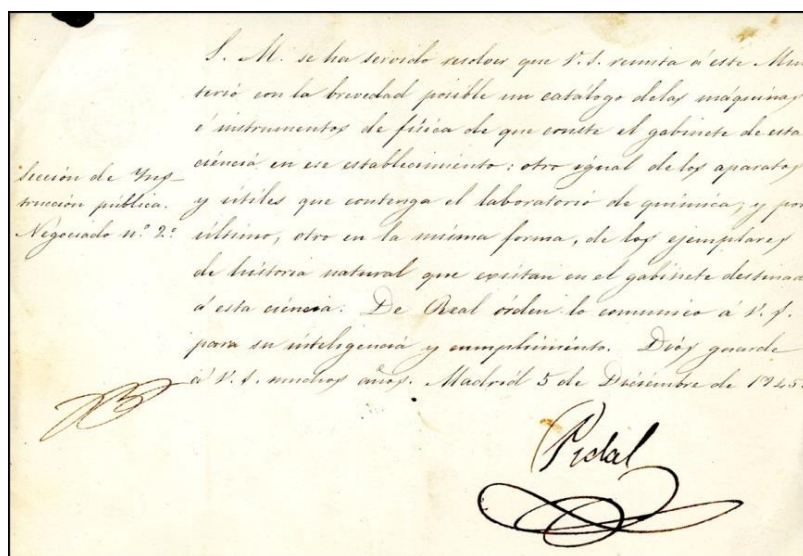 S. M. se ha servido resolver que V. S. remita á este Minis
terio con la brevedad posible un catálogo de las máquinas
é instrumentos de física de que conste el gabinete de esta
ciéncia en ese establecimiento: otro igual de los aparatos
y útiles que contenga el laboratorio de química, y por
último, otro en la misma forma, de los ejemplares
de história natural que existan en el gabinete destinad
á esta ciéncia. De Real órden lo comunico á V. S.
para su inteligencia y cumplimiento. Dios guarde
á V. S. muchos años. Madrid 5 de Diciembre de 1845.
Sección de Yns-
trucción pública.
Negociado nº 2º
Pidal